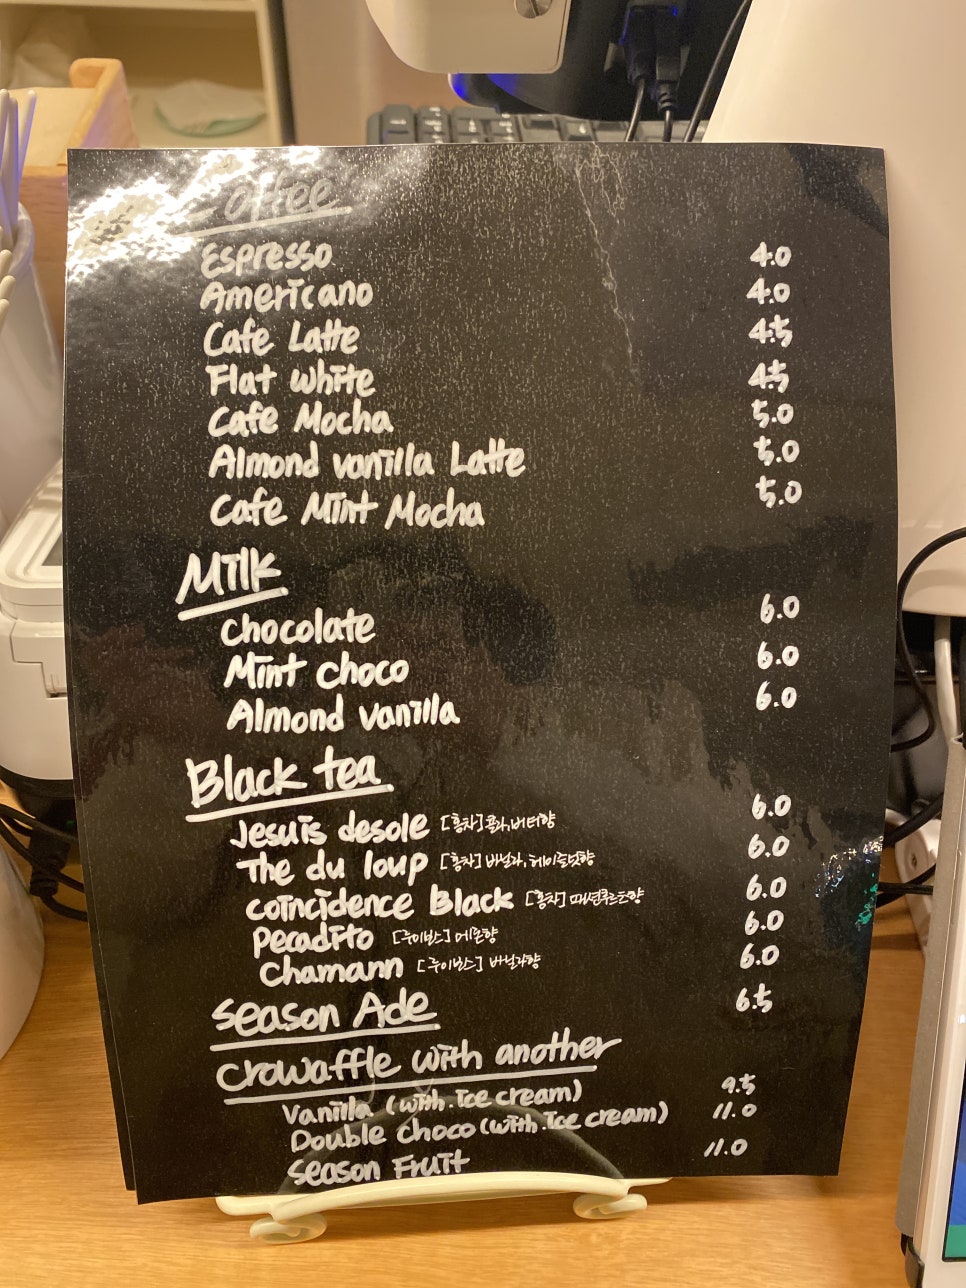 Coffee
Espresso 4.0
Americano 4.0
Cafe Latte 4.5
Flat white 4.5
Cafe Mocha 5.0
Almond vanilla Latte 5.0
Cafe Mint Mocha 5.0
Milk
Chocolate 6.0
Mint choco 6.0
Almond vanilla 6.0
Black tea
Jesuis desole [홍차]콜라,버터향 6.0
The du loup [홍차]바닐라,헤이즐넛향 6.0
Coincidence Black [홍차]패션후르츠향 6.0
Pecadito [루이보스]메론향 6.0
Chamann [루이보스]바닐라향 6.0
Season Ade 6.5
Crowaffle with another
Vanilla (with.Ice cream) 9.5
Double choco (with.Ice cream) 11.0
Season Fruit 11.0